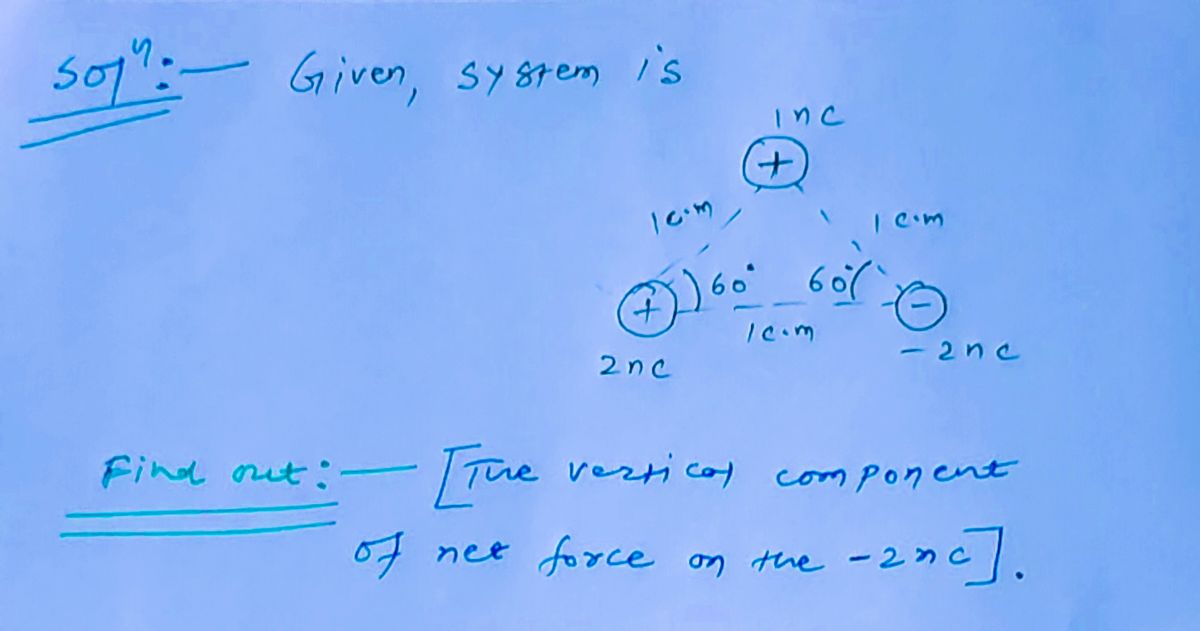 Solⁿ:— Given, system is
1nc
+
1c.m 1c.m
+ 60° 60° -
1c.m
2nc -2nc
Find out:— [The vertical component
of net force on the -2nc].